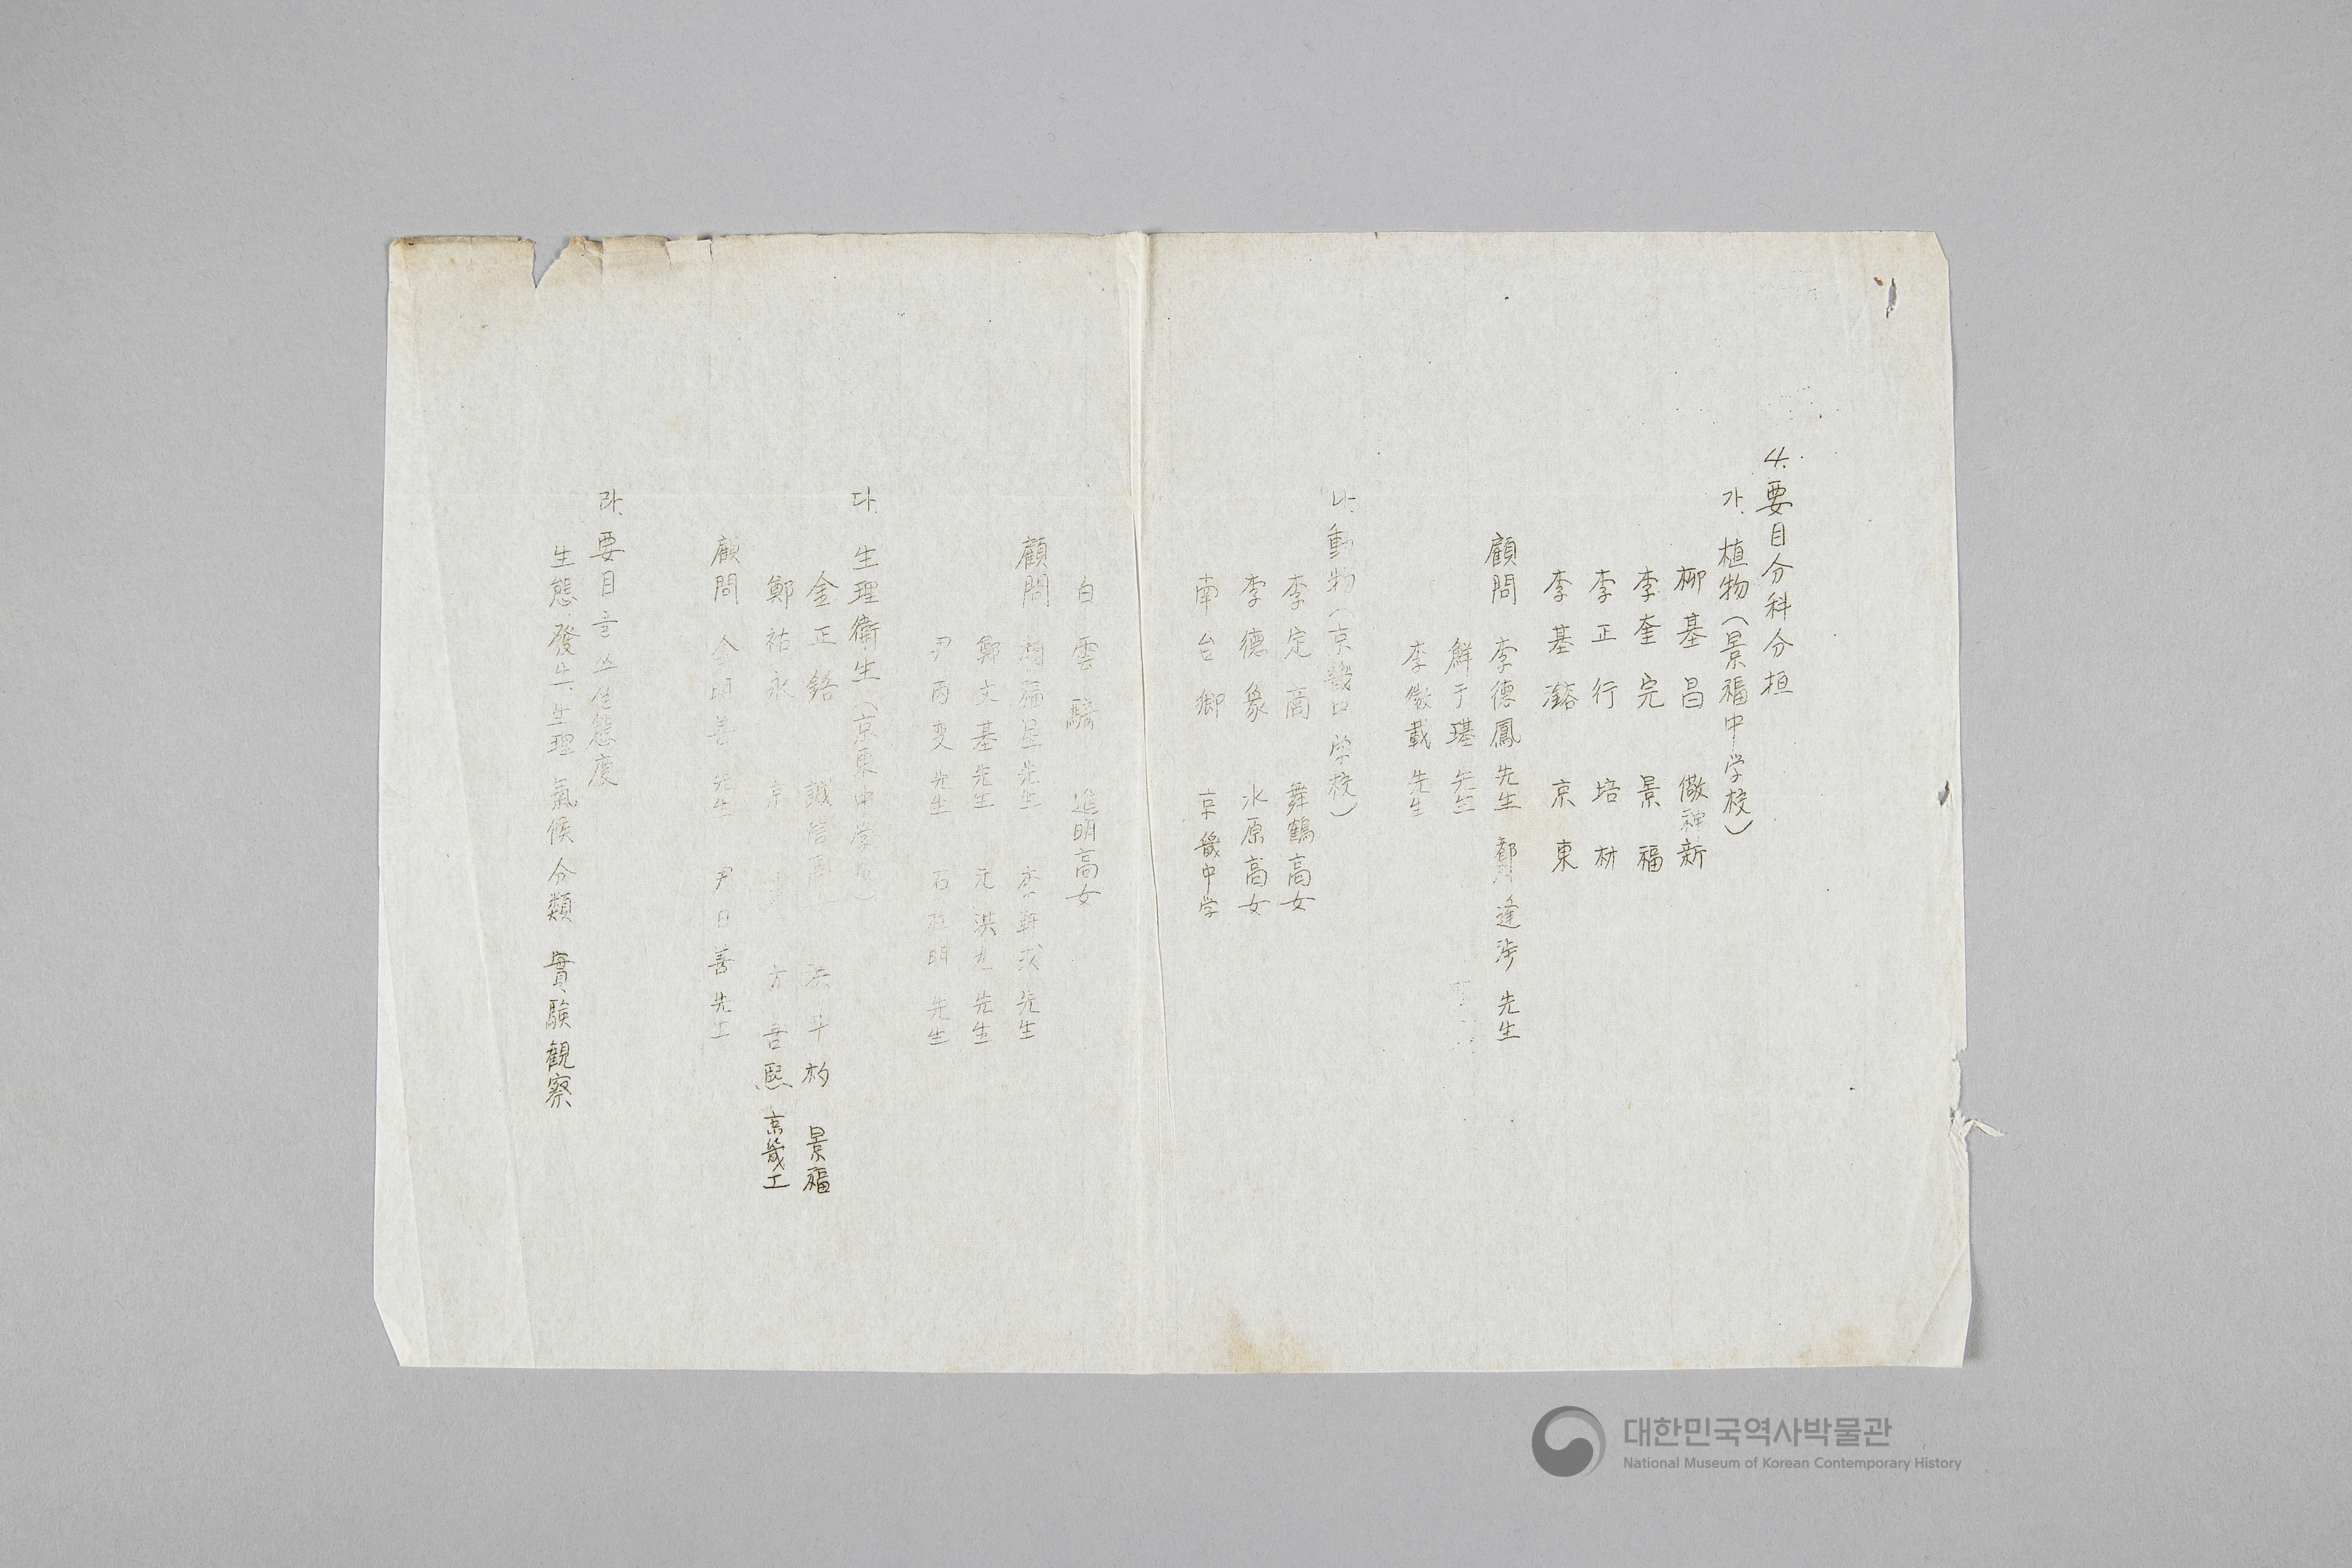 4. 要目分科分担
가. 植物(景福中学校)
柳基昌 儆新
李奎完 景福
李正行 培材
李基瀯 京東
顧問 李德鳳 先生 都逢涉 先生
鮮于 先生
李徽載 先生
나. 動物(京畿中学校)
李定商 舞鶴高女
李德象 水原高女
南台鄉 京畿中学
白雲 進明高女
顧問 趙福星先生 李 先生
鄭文基先生 元洪九先生
尹丙変先生 石宙明先生
다. 生理衛生(京東中学校)
金正鉻 誠信 洪斗杓 景福
鄭祐永 京 方吾熙 京畿工
顧問 金明善先生 尹日善先生
라. 要目을쓰는態度
生態發生.生理 氣候分類 實験観察
대한민국역사박물관
National Museum of Korean Contemporary History